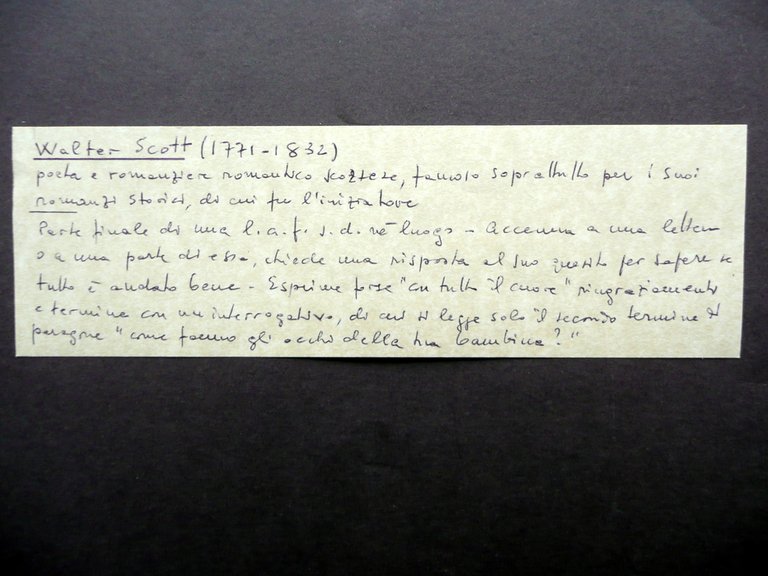 Walter Scott (1771-1832)
poeta e romanziere romantico scozzese, famoso soprattutto per i suoi
romanzi storici, di cui fu l'iniziatore
Parte finale di una l.a.f. s.d. nè luogo - Accenna a una lettera
o a una parte di essa, chiede una risposta al suo quesito per sapere se
tutto è andato bene - Esprime forse "con tutto il cuore" ringraziamenti
e termina con un interrogativo, di cui si legge solo il secondo termine di
paragone "come fanno gli occhi della tua bambina?"